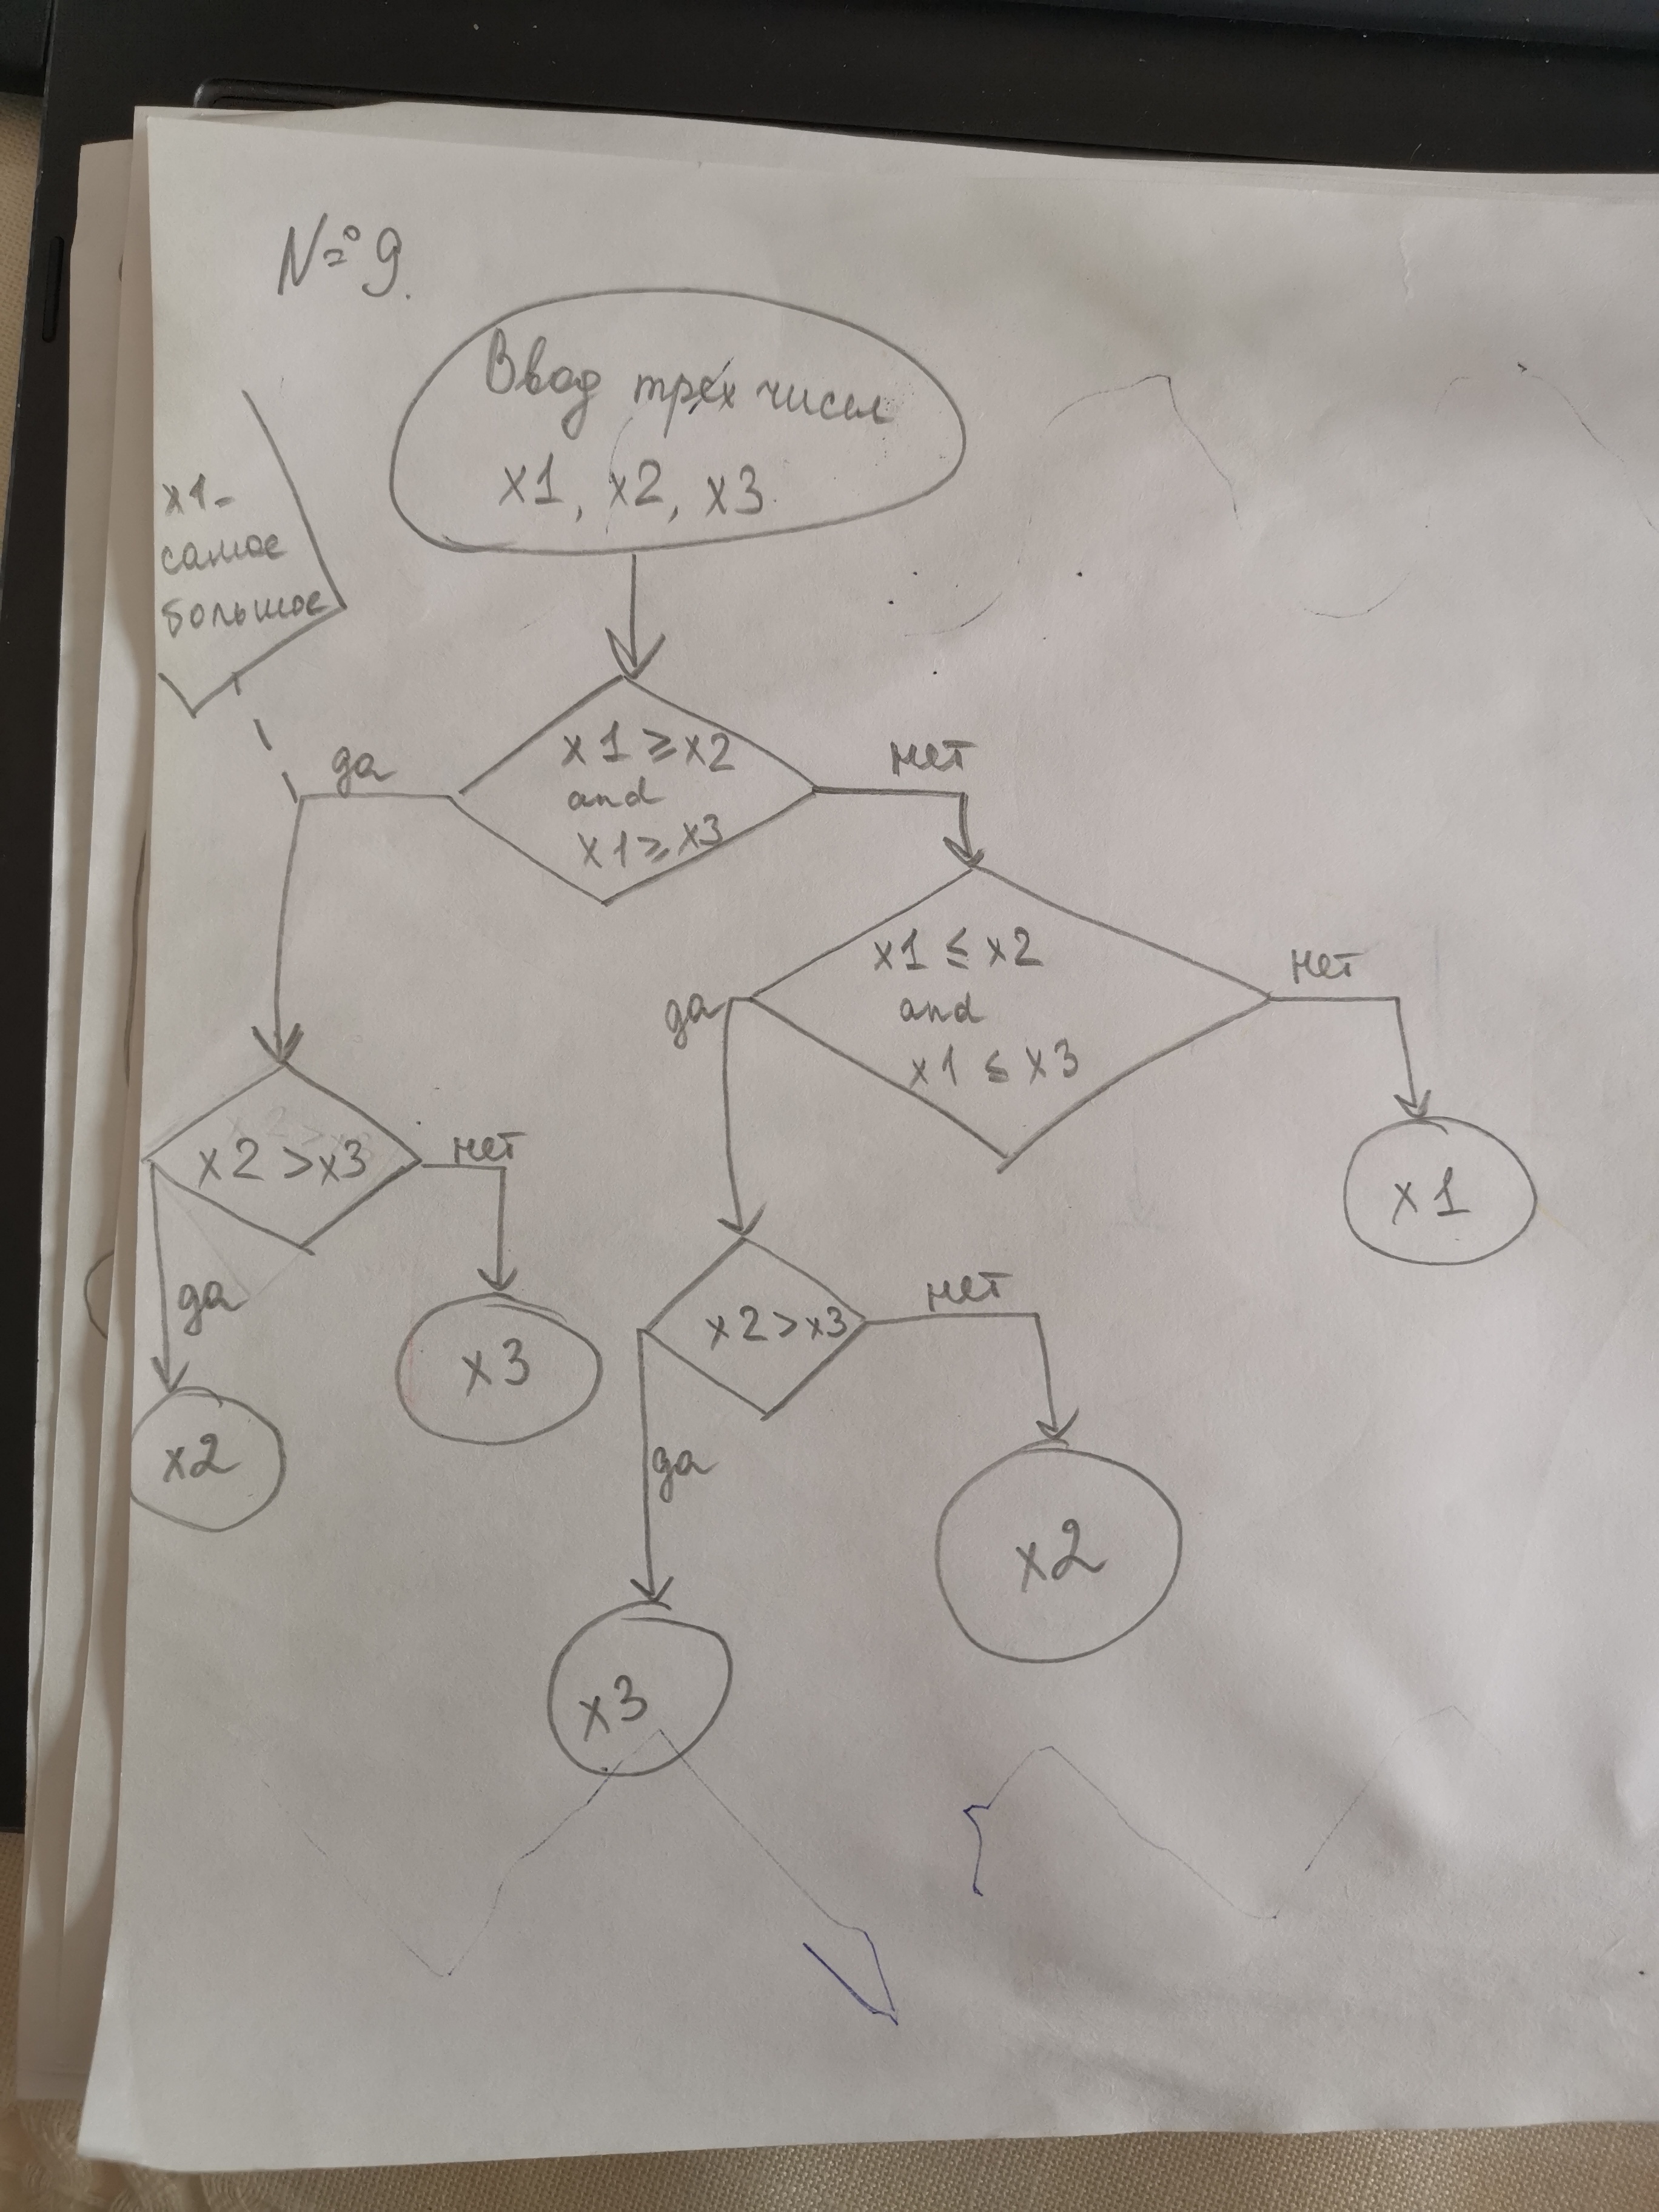 № 9.
Ввод трёх чисел
x1, x2, x3
x1-
самое
большое
x1 ≥ x2
and
x1 ≥ x3
да
нет
x1 ≤ x2
and
x1 ≤ x3
да
нет
x1
x2 > x3
нет
да
x3
x2
x2 > x3
нет
да
x2
x3